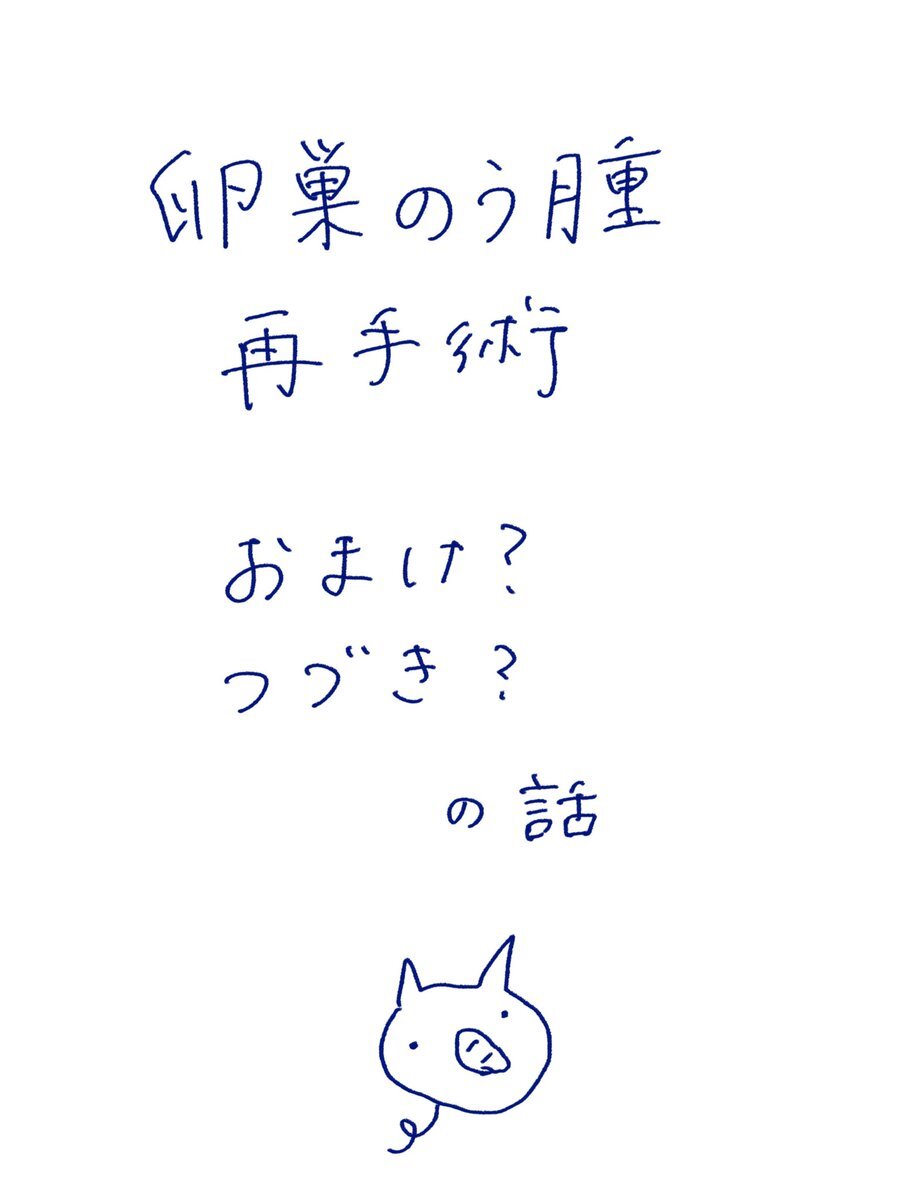 卵巣のう腫
再手術
おまけ？
つづき？
の話